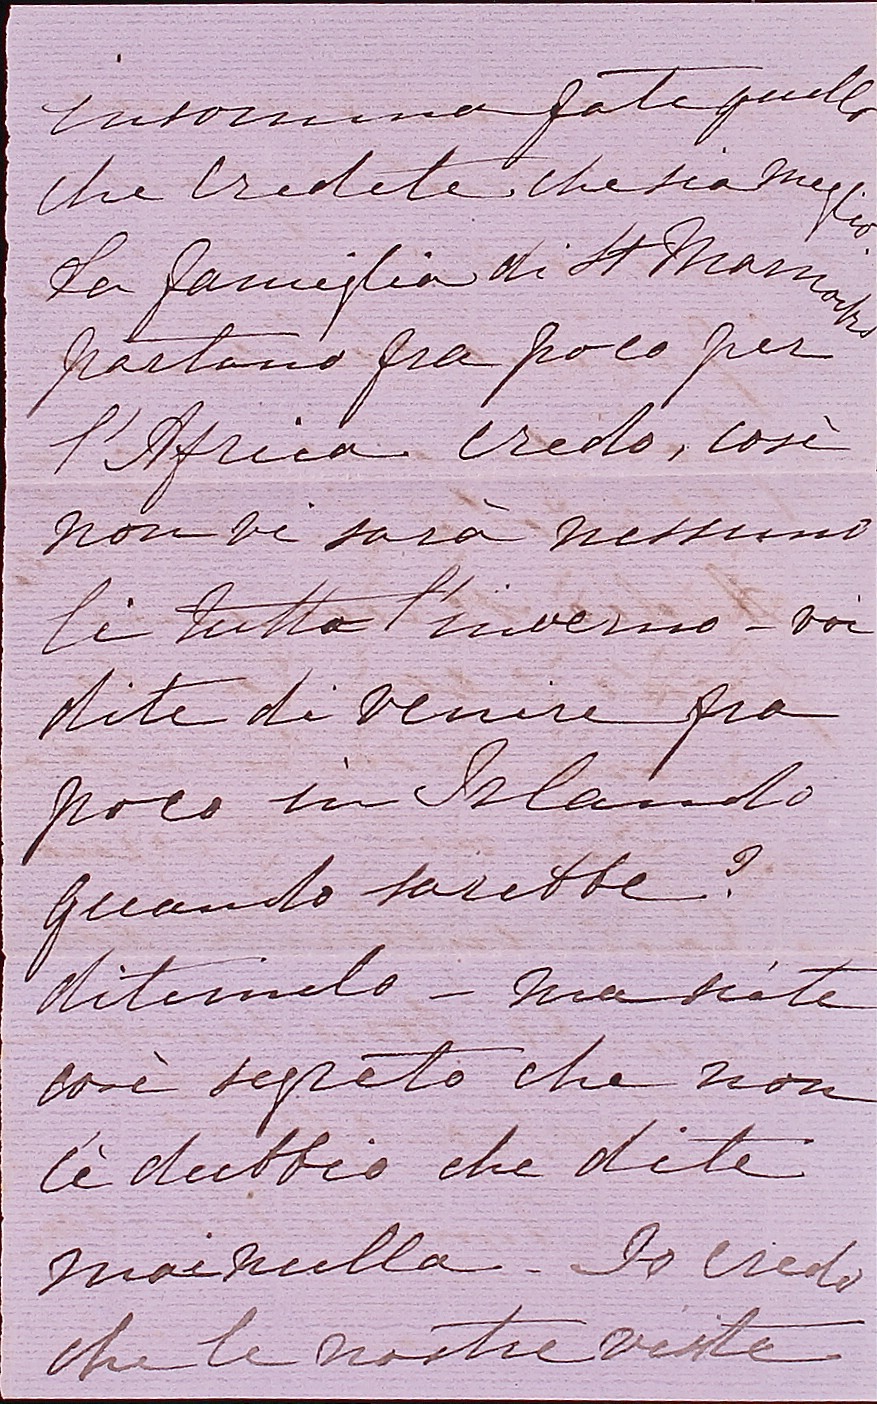 insomma fate quello
che credete che sia meglio
La famiglia di St
partano fra poco per
l'Africa credo, così
non vi sarà nessuno
li tutto l'inverno - voi
dite di venire fra
poco in Irlando
quando sarebbe?
ditemelo - ma siete
così segreto che non
c'è dubbio che dite
mai nulla - Io credo
che le nostre visite